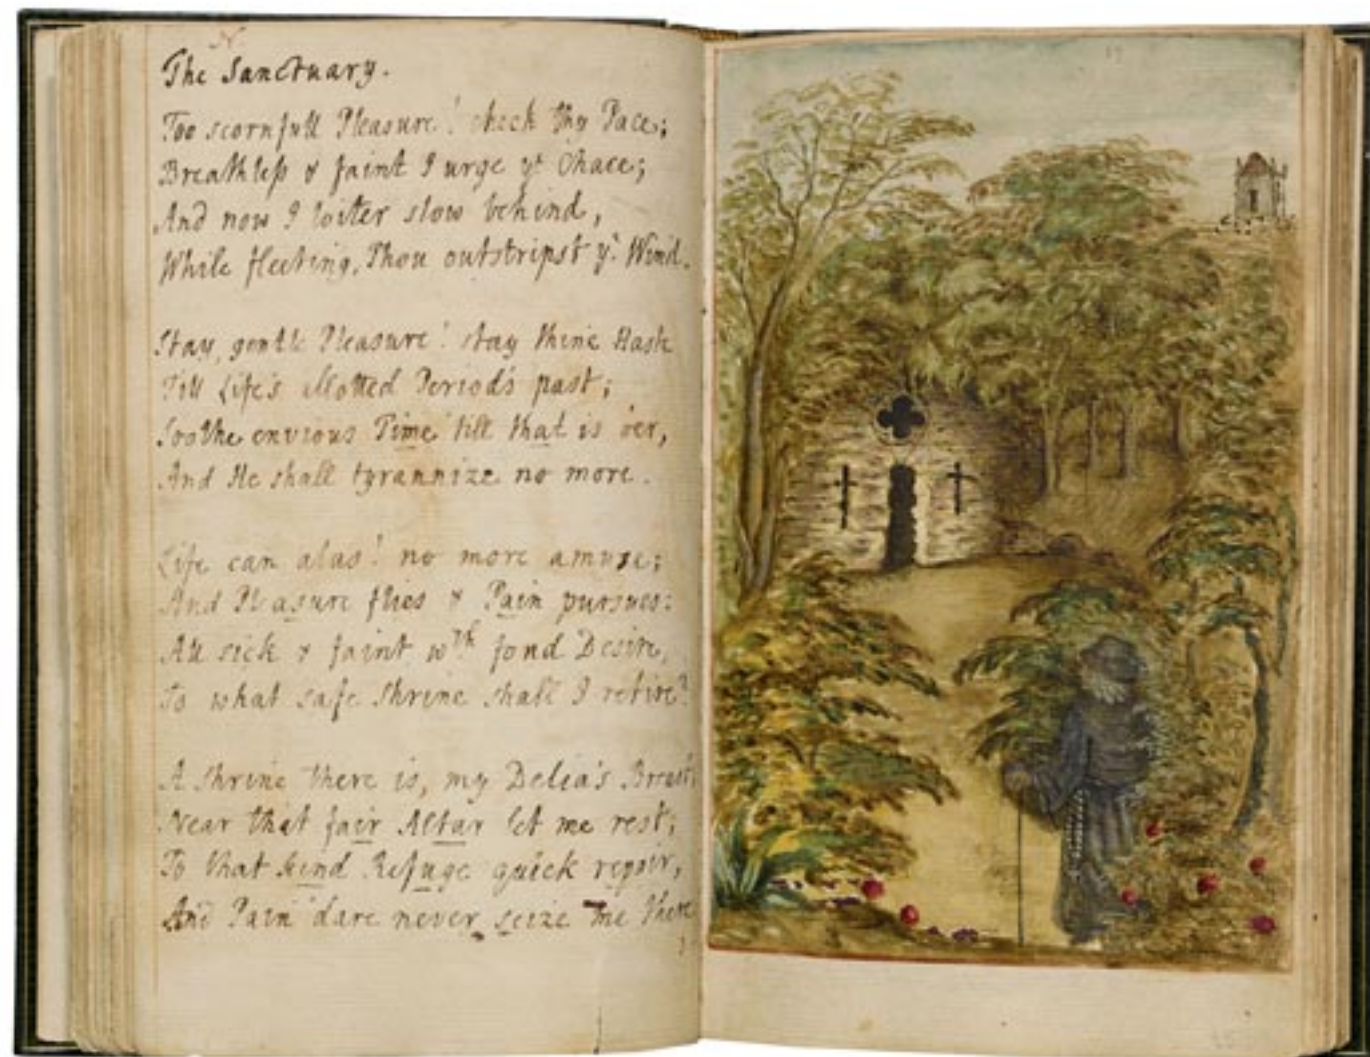 N.
The Sanctuary.
Too scornfull Pleasure! check thy Pace;
Breathless & faint I urge yᵉ Chace;
And now I loiter slow behind,
While fleeting, Thou outstripst yᵉ Wind.
Stay, gentle Pleasure! stay thine Haste
Till Life's allotted Period's past;
Soothe envious Time till that is o'er,
And He shall tyrannize no more.
Life can alas! no more amuse;
And Pleasure flies & Pain pursues:
All sick & faint wᵗʰ fond Desire,
To what safe Shrine shall I retire?
A Shrine there is, my Delia's Breast!
Near that fair Altar let me rest;
To that kind Refuge quick repair,
And Pain dare never seize me there